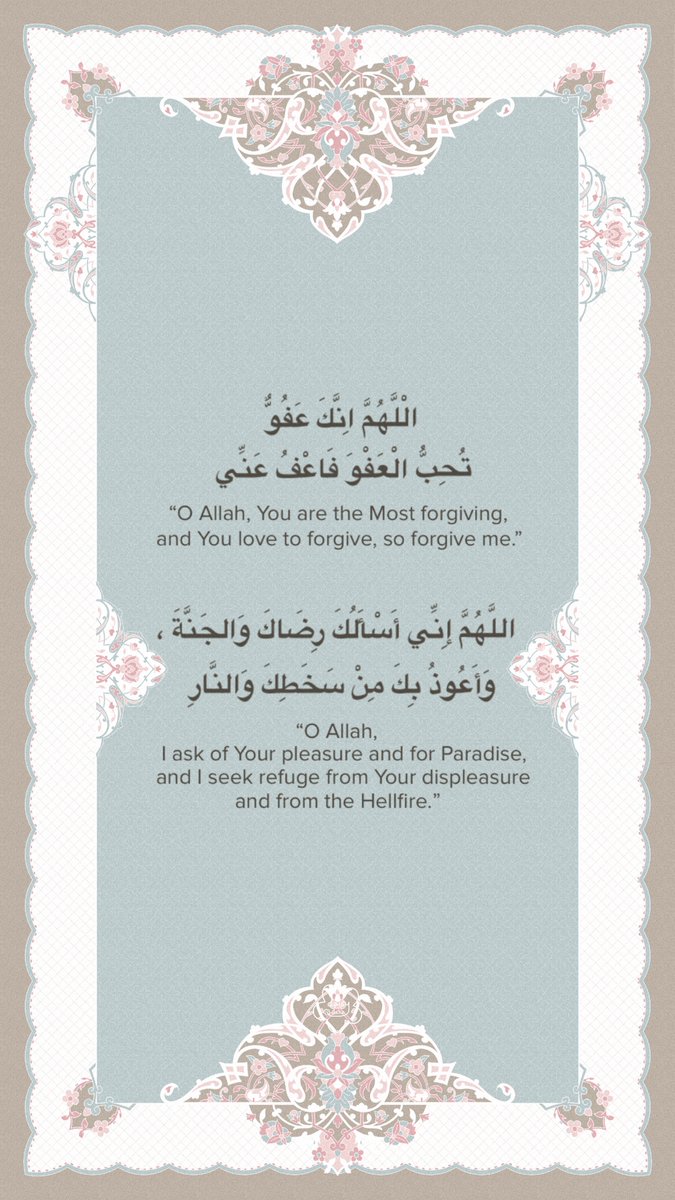 الْلَّهُمَّ اِنَّكَ عَفُوٌّ
تُحِبُّ الْعَفْوَ فَاعْفُ عَنِّي
“O Allah, You are the Most forgiving,
and You love to forgive, so forgive me.”
اللَّهُمَّ إِنِّي أَسْأَلُكَ رِضَاكَ وَالجَنَّةَ ،
وَأَعُوذُ بِكَ مِنْ سَخَطِكَ وَالنَّارِ
“O Allah,
I ask of Your pleasure and for Paradise,
and I seek refuge from Your displeasure
and from the Hellfire.”